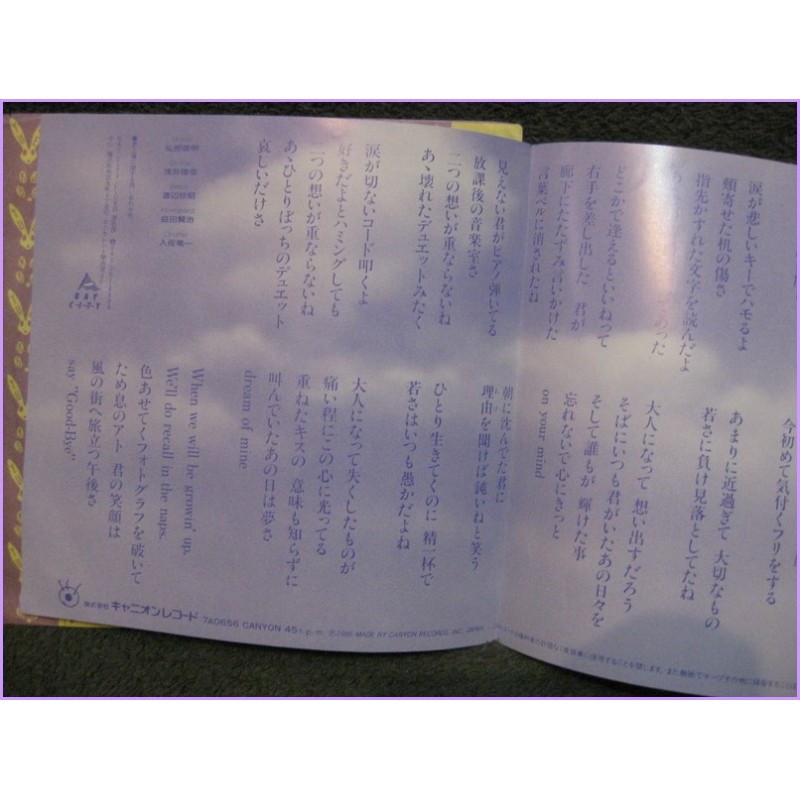 涙が悲しいキーでハモるよ
頬寄せた机の傷さ
指先かすれた文字を読んだよ
あった
どこかで逢えるといいねって
右手を差し出した 君が
廊下にたたずみ言いかけた
言葉ベルに消されたね
見えない君がピアノ弾いてる
放課後の音楽室さ
二つの想いが重ならないね
あゝ壊れたデュエットみたく
涙が切ないコード叩くよ
好きだよとハミングしても
二つの想いが重ならないね
あゝひとりぼっちのデュエット
哀しいだけさ
今初めて気付くフリをする
あまりに近過ぎて 大切なもの
若さに負け見落としてたね
大人になって 想い出すだろう
そばにいつも君がいたあの日々を
そして誰もが 輝けた事
忘れないで心にきっと
on your mind
朝に沈んでた君に
理由を聞けば 鈍いねと笑う
ひとり生きてくのに 精一杯で
若さはいつも愚かだよね
大人になって失くしたものが
痛い程にこの心に光ってる
重ねたキスの 意味も知らずに
叫んでいたあの日は夢さ
dream of mine
When we will be growin' up,
We'll do recall in the naps.
色あせてくフォトグラフを破いて
ため息のアト 君の笑顔は
風の街へ旅立つ午後さ
say "Good-Bye"
BAY
C-I-T-Y
株式会社 キャニオンレコード 7A0656 CANYON 45r.p.m. Ⓟ1986 MADE BY CANYON RECORDS, INC. JAPAN